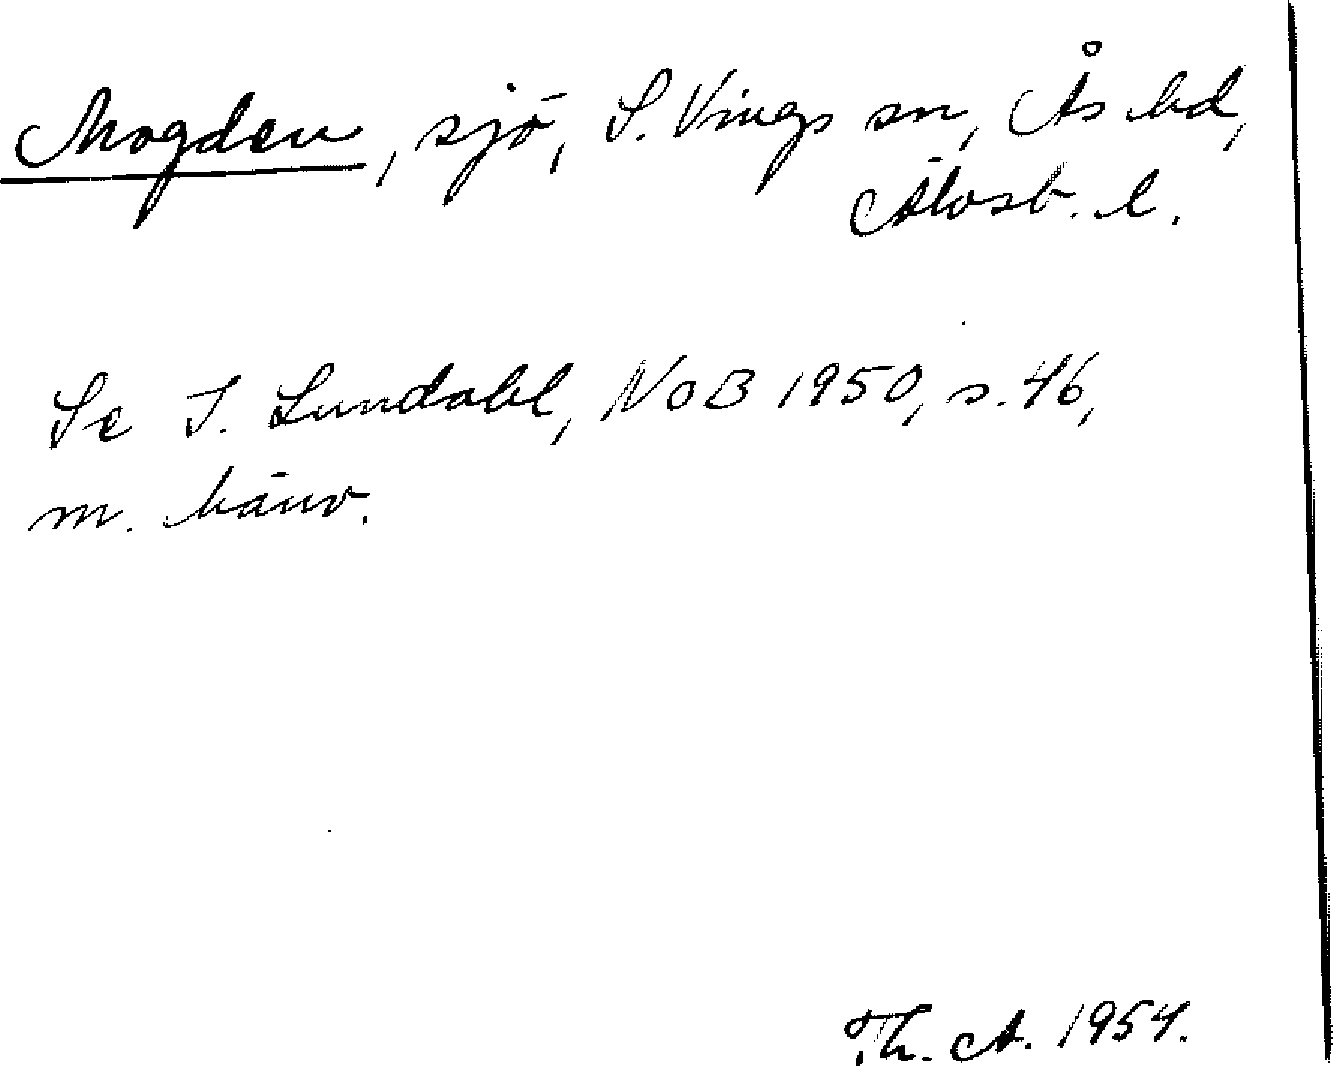 Mogden, sjö, S. Vings sn, Ås hd,
Älvsb. l.
Se I. Lundahl, NoB 1950, s. 46,
m. hänv.
Th. A. 1954.